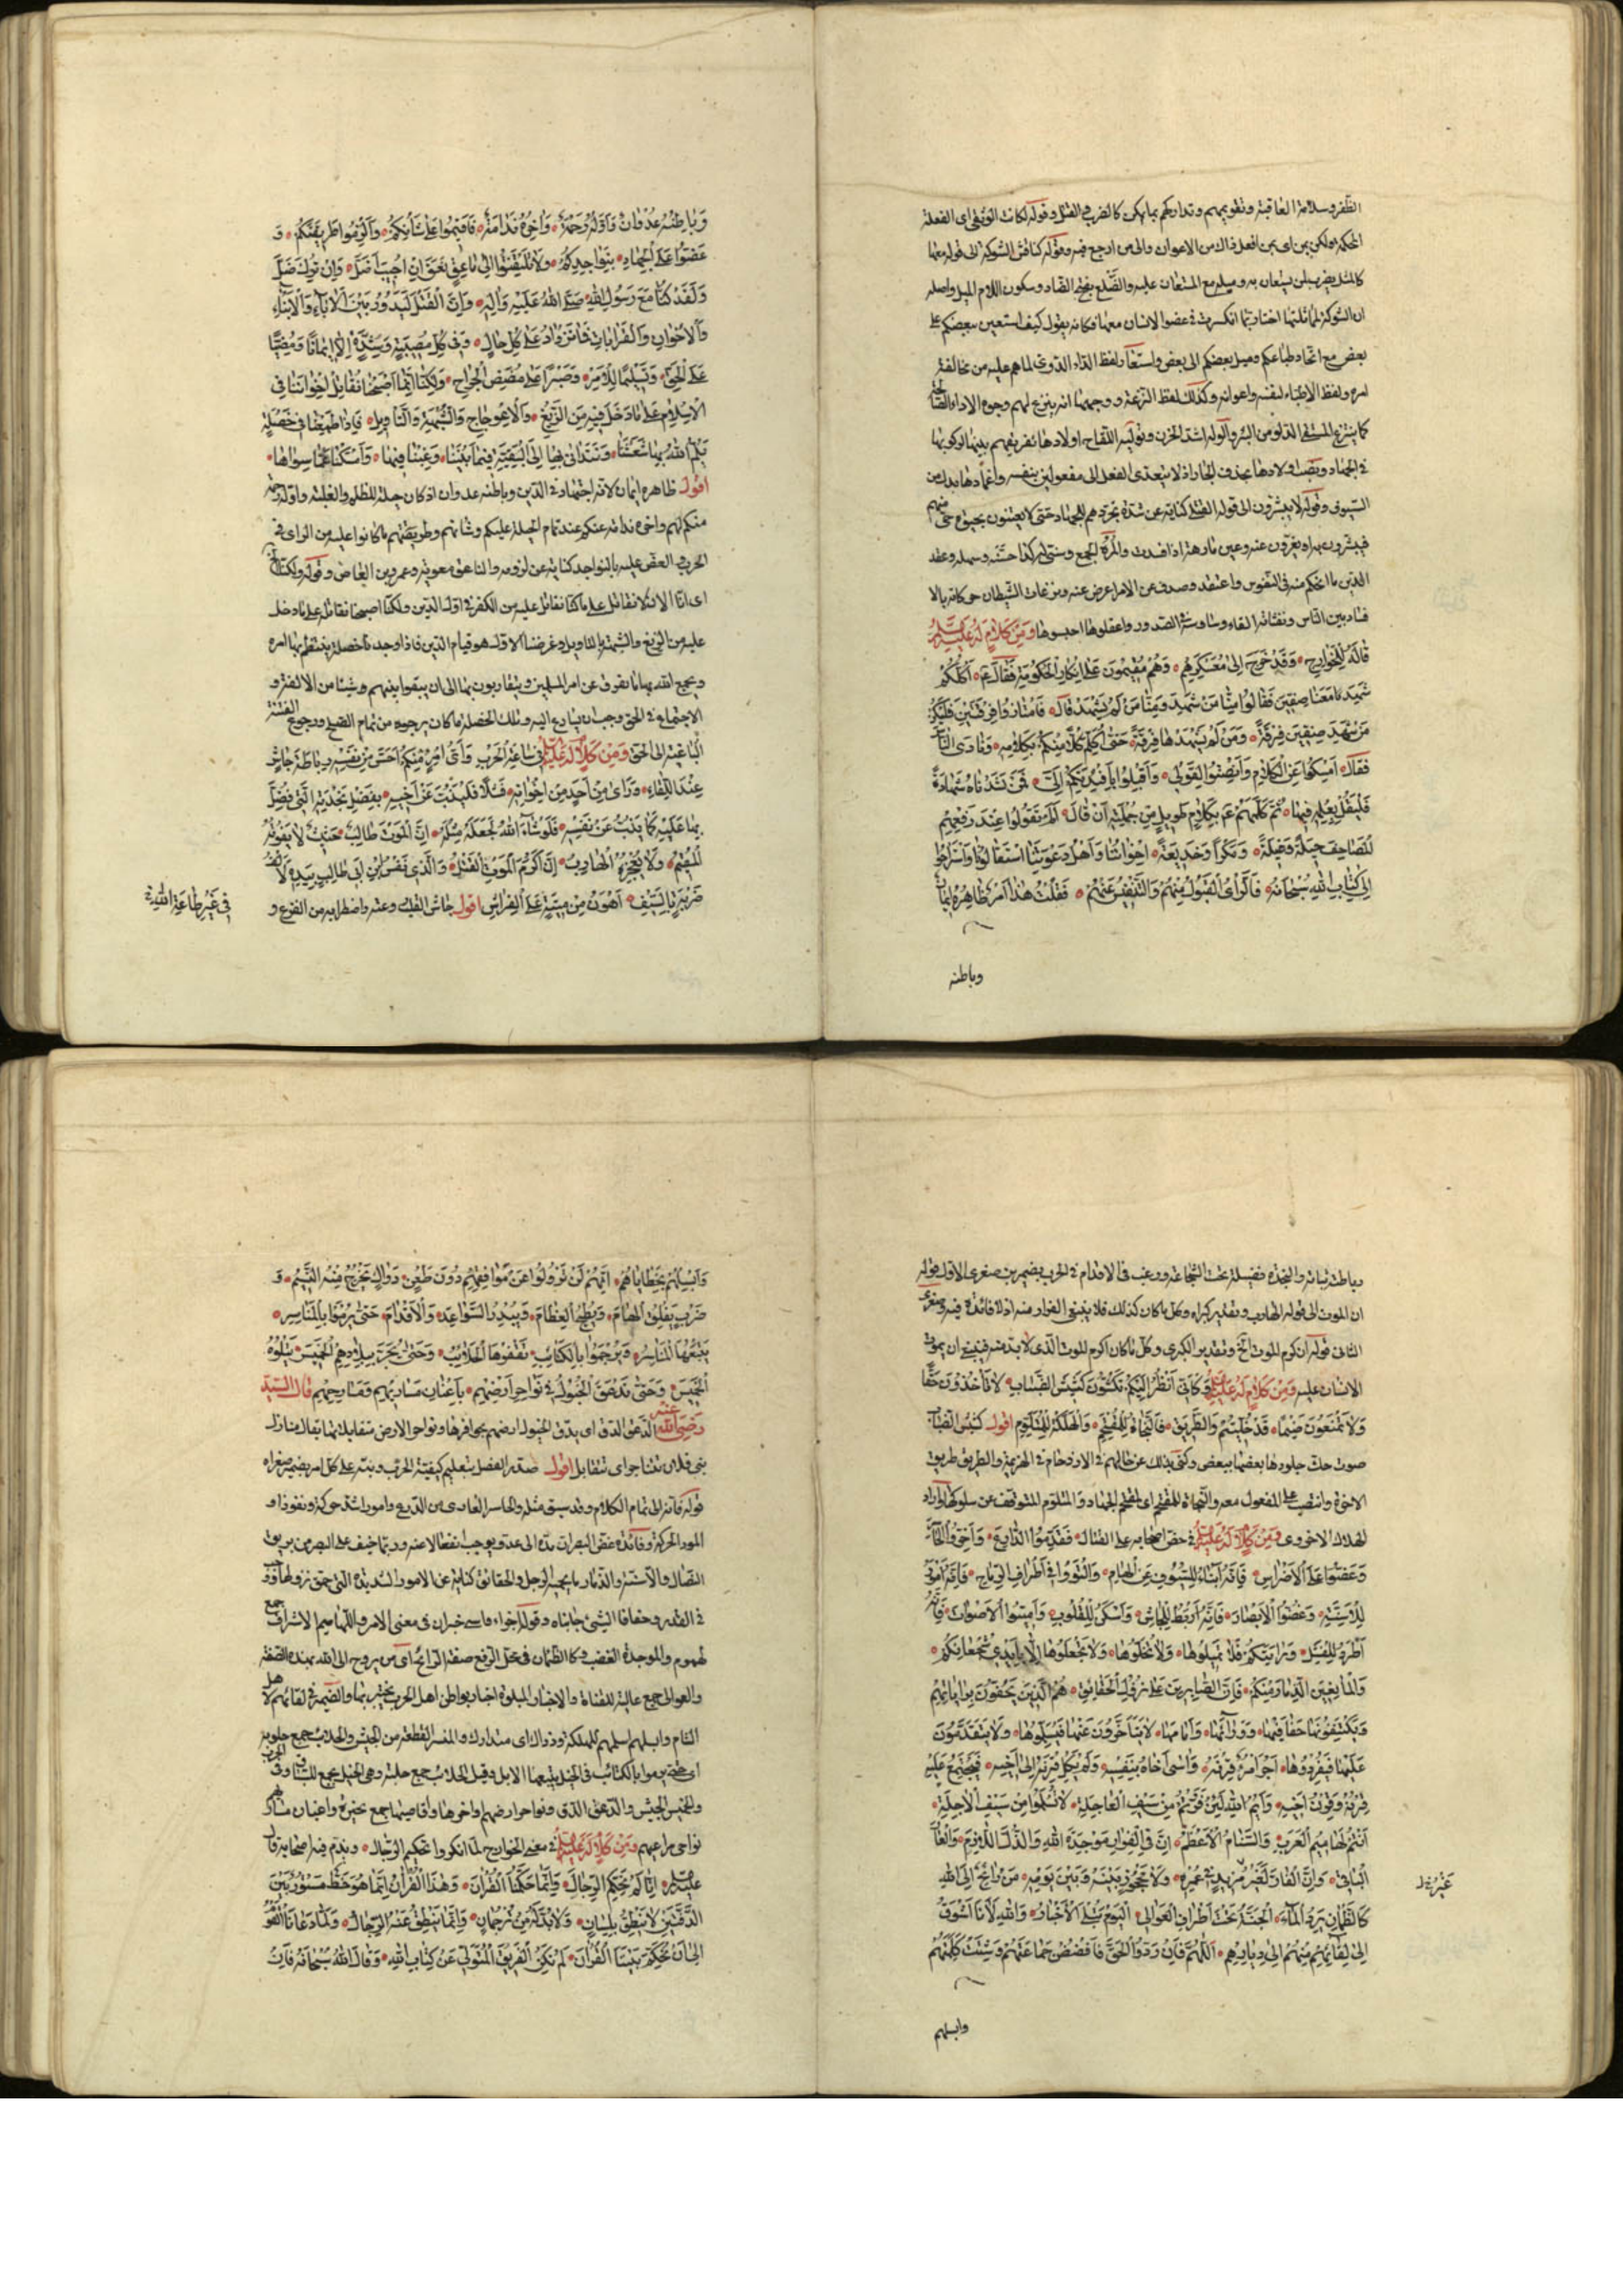 الظفر وسلامة العاقبة وتقويمهم وتداركهم بما يمكن كالضرب في القتل وقوله لكانت الوثقى اى الفعلة
المحكمة ولكن بمن اى بمن افعل ذلك من الاعوان والى من ارجع فيه وقوله كناقش الشوكة الى قوله معها
كالمثل يضرب لمن يستعان به وميله مع المستعان عليه والضلع بفتح الضاد وسكون اللام الميل واصله
ان الشوكة لمماثلتها اختها ربما انكسرت في عضو الانسان معها فكانه يقول كيف استعين ببعضكم على
بعض مع اتحاد طباعكم وميل بعضكم الى بعض واستعار لفظ الداء الدوى لما هم عليه من مخالفة
امره ولفظ الاطباء لنفسه واعوانه وكذلك لفظ النزعة ووجهها انه ينزع لهم وجوه الاراء الصالحة
كما ينتزع المستقى الدلو من البئر والوله اشد الحزن وتوليه اللقاح اولادها تفريقهم بينها لركوبها
في الجهاد ونصب اولادها بحذف الجار اذ لا يتعدى الفعل الى مفعولين بنفسه واغمادها بدل من
السيوف وقوله لا يبشرون الى قوله القتلى كناية عن شدة تجردهم للجهاد حتى لا يعتنون بحيوة حى منهم
فيبشرون به او يعزون عنه وعين مارهة اذا فسدت والمره الجمع وسنى له كذا حسنه وسهله وعقد
الدين ما احكم منه في النفوس واعتقد وصدف عن الامر اعرض عنه ونزغات الشيطان حركاته بالا
فساد بين الناس ونفثاته القاء وساوسه في الصدور واعقلوها احبسوها ومن كلام له عليه السلام
قاله للخوارج وقد خرج الى معسكرهم وهم مقيمون على انكار الحكومة فقال ع اكلكم
شهد معنا صفين فقالوا منا من شهد ومنا من لم يشهد قال فامتازوا فرقتين فليكن
من شهد صفين فرقة ومن لم يشهدها فرقة حتى اكلم كلا منكم بكلامه ونادى الناس
فقال امسكوا عن الكلام وانصتوا لقولى واقبلوا بافئدتكم الى فمن نشدناه شهادة
فليقل بعلمه فيها ثم كلمهم ع بكلام طويل من جملته ان قال الم تقولوا عند رفعهم
المصاحف حيلة وغيلة ومكرا وخديعة اخواننا واهل دعوتنا استقالونا واستراحوا
الى كتاب الله سبحانه فالراى القبول منهم والتنفيس عنهم فقلت هذا امر ظاهره ايمان
وباطنه
وباطنه عدوان واوله رحمة واخره ندامة فاقيموا على شأنكم والزموا طريقتكم و
عضوا على الجهاد بنواجدكم ولا تلتفتوا الى ناعق نعق ان اجيب اضل وان ترك ضل
ولقد كنا مع رسول الله صلى الله عليه واله وان القتل ليدور بين الاباء والابناء
والاخوان والقرابات فما نزداد على كل حال وفى كل مصيبة وشدة الا ايمانا ومضيا
على الحق وتسليما للامر وصبرا على مضض الجراح ولكنا انما اصبحنا نقاتل اخواننا في
الاسلام على ما دخل فيه من الزيغ والاعوجاج والشبهة والتأويل فاذا طمعنا في خصلة
يلم الله بها شعثنا ونتدانى بها الى البقية فيما بيننا رغبنا فيها وامسكنا عما سواها
اقول ظاهره ايمان لانه اجتهاد في الدين وباطنه عدوان اذ كان حيلة للظلم والغلبة واوله رحمة
منكم لهم واخره ندامة عنكم عند تمام الحيلة عليكم وشانهم وطريقتهم ما كانوا عليه من الراى في
الحرب والعض عليه بالنواجد كناية عن لزومه والناعق معوية وعمرو بن العاص وقوله ولكنا الخ
اى انا الان لا نقاتل على ما كنا نقاتل عليه من الكفر في اول الدين ولكنا اصبحنا نقاتل على ما دخل
عليه من الزيغ والشبهة بالتاويل وغرضنا الاول هو قيام الدين فاذا وجدنا خصلة ينتظم بها امره
ويجمع الله بها ما تفرق عن امر المسلمين ويتقاربون بها الى ان يبقوا بينهم وشيئا من الالفة و
الاجتماع في الحق وجب ان يسارع اليه وتلك الخصلة ما كان يرجوه من تمام الصلح ورجوع الفئة
الباغية الى الحق ومن كلام له عليه السلام في ساعة الحرب واى امرئ منكم احس من نفسه رباطة جاش
عند اللقاء ورأى من احد من اخوانه فشلا فليذب عن اخيه بفضل نجدته التى فضل
بها عليه كما يذب عن نفسه فلو شاء الله لجعله مثله ان الموت طالب حثيث لا يفوته
المقيم ولا يعجزه الهارب ان اكرم الموت القتل والذى نفس ابن ابى طالب بيده لالف
ضربة بالسيف اهون من ميتة على الفراش اقول جاش القلب روعته واضطرابه من الفزع و
في غير طاعة الله
رباطه ثباته والنجدة فضيلة تحت الشجاعة ورغب في الاقدام في الحرب بضميرين صغرى الاول قوله
ان الموت الى قوله الهارب وتقدير كبراه وكل ما كان كذلك فلا ينبغى الفرار منه اذ لا فائدة فيه وصغرى
الثانى قوله ان اكرم الموت الخ وتقدير الكبرى وكل ما كان اكرم الموت الذى لا بد منه فينبغى ان يموت
الانسان عليه ومن كلام له عليه السلام كانى انظر اليكم تكشون كشيش الضباب لا تأخذون حقا
ولا تمنعون ضيما قد خليتم والطريق فالنجاة للمقتحم والهلكة للمتلوم اقول كشيش الضباب
صوت حك جلودها بعضها ببعض وكنى بذلك عن حالهم في الازدحام في الهزيمة والطريق طريق
الاخرة وانتصب على المفعول معه والنجاة للمقتحم اى لمقتحم الجهاد والمتلوم المتوقف عن سلوكها واراد
الهلاك الاخروى ومن كلام له عليه السلام في حض اصحابه على القتال فقدموا الدارع واخروا الحاسر
وعضوا على الاضراس فانه انبا للسيوف عن الهام والتووا في اطراف الرماح فانه امور
للاسنة وغضوا الابصار فانه اربط للجاش واسكن للقلوب واميتوا الاصوات فانه
اطرد للفشل ورايتكم فلا تميلوها ولا تخلوها ولا تجعلوها الا بايدى شجعانكم
والمانعين الذمار منكم فان الصابرين على نزول الحقائق هم الذين يحفون براياتهم
ويكتنفونها حفافيها ووراءها وامامها لا يتأخرون عنها فيسلموها ولا يتقدمون
عليها فيفردوها اجزأ امرؤ قرنه واسى اخاه بنفسه ولم يكل قرنه الى اخيه فيجتمع عليه
قرنه وقرن اخيه وايم الله لئن فررتم من سيف العاجلة لا تسلموا من سيف الاجلة
انتم لهاميم العرب والسنام الاعظم ان في الفرار موجدة الله والذل اللازم والعار
الباقى وان الفار لغير مزيد في عمره ولا محجوز بينه وبين يومه من رائح الى الله
كالظمان يرد الماء الجنة تحت اطراف العوالى اليوم تبلى الاخبار والله لانا اشوق
الى لقائهم منهم الى ديارهم اللهم فان ردوا الحق فافضض جماعتهم وشتت كلمتهم
وابسلهم
وابسلهم بخطاياهم انهم لن يزولوا عن مواقفهم دون طعن دراك يخرج منه النسيم و
ضرب يفلق الهام ويطيح العظام ويبدر السواعد والاقدام حتى يرموا بالمناسر
يتبعها المناسر ويرجموا بالكتائب تقفوها الحلائب وحتى يجر ببلادهم الخميس يتلوه
الخميس وحتى تدعق الخيول في نواحر ارضهم باعنان مساربهم ومسارحهم قال السيد
رضى الله عنه الدعق الدق اى يدق الخيول ارضهم بحوافرها ونواحر الارض متقابلاتها يقال منازل
بنى فلان تتناحر اى تتقابل اقول صدر الفصل بتعليم كيفية الحرب ونبه على كل امر بضمير صغراه
قوله فانه الى تمام الكلام وقد سبق مثله والحاسر العارى من الدرع وامور اشد حركة ونفوذا و
المور الحركة وفائدة غض البصر ان مده الى عدو يوجب نفعا لا عنه وربما خيف على البصر من بريق
النصال والاسنة والذمار ما يجب الرجل والحقائق كناية عن الامور الشديدة التى حق نزولها
في القدر وحفافا الشيئ جانباه وقوله اجزاء واسى خبران في معنى الامر واللهاميم الاشراف جمع
لهموم والموجدة الغضب وكالظمان في محل الرفع صفة الرائح اى من يروح الى الله بهذه الصفة
والعوالى جمع عالية للقناة والاخبار المبلوة اخبار بواطن اهل الحرب يختبر بها والضمير في لقائهم لاهل
الشام وابسلهم اسلمهم للهلكة ودراك اى متدارك والمنسر القطعة من الجيش
والخميس الجيش والدعق الدق ونواحر ارضهم اواخرها واقاصيها جمع نحيرة واعنان مساربهم
نواحى مراعيهم ومن كلام له عليه السلام في معنى الخوارج لما انكروا تحكيم الرجال ويذم فيه اصحابه قال
عليه السلام انا لم نحكم الرجال وانما حكمنا القران وهذا القران انما هو خط مستور بين
الدفتين لا ينطق بلسان ولا بد له من ترجمان وانما ينطق عنه الرجال ولما دعانا القوم
الى ان نحكم بيننا القران لم نكن الفريق المتولى عن كتاب الله وقال الله سبحانه فان